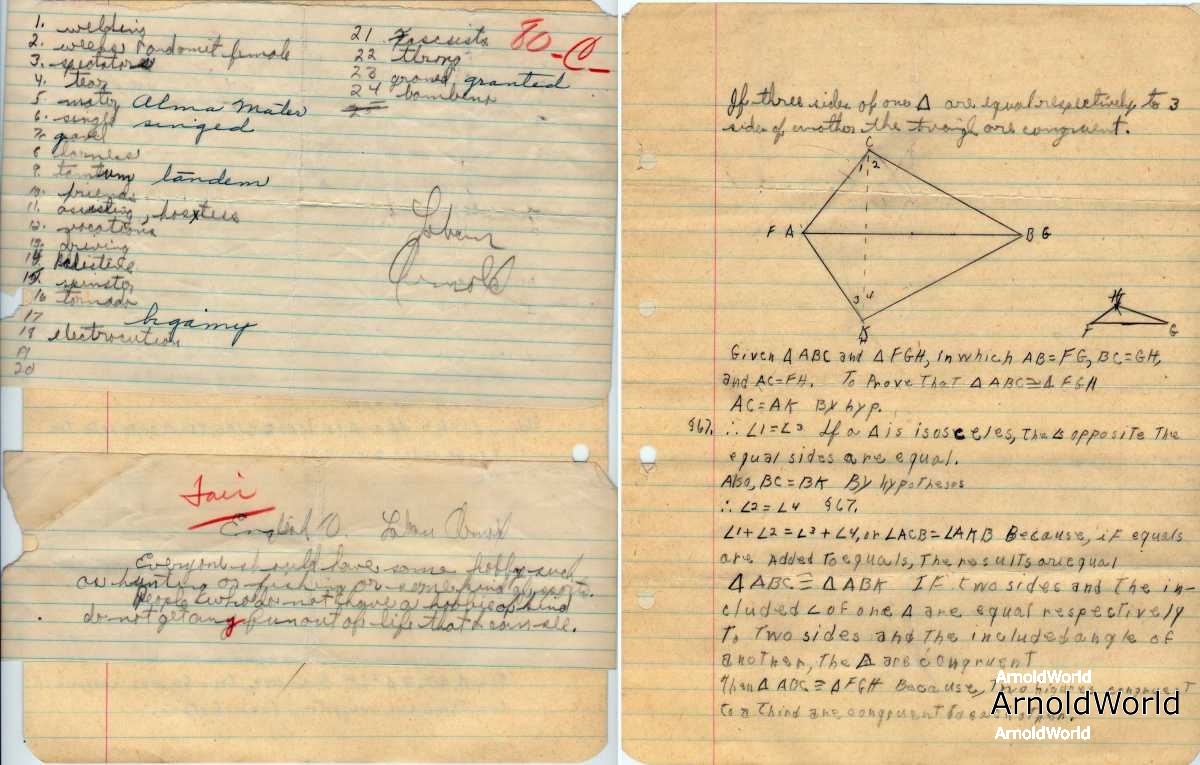 1. welding
2.
3. spectators
4. tear
5. mater Alma Mater
6. single singed
7. gavel
8 harness
9. tantum tandem
10. friends
11. assisting, hostess
12. vocations
13. driving
14
15. spinster
16 tornado
17 bigamy
18 electrocution
19
20
21 Fascists
22 throng
23 granted
24 bambino
25
80-C
Laban
Arnold
Fair
English O. Laban Arnold
Everyone should have some hobby such
as hunting or fishing or some kind of sports.
People who do not have a hobby of kind
do not get any fun out of life that I can see.
If three sides of one Δ are equal respectively to 3
sides of another the triangles are congruent.
C
1 2
F A
B G
3 4
K
H
F G
Given Δ ABC and Δ FGH, in which AB=FG, BC=GH,
and AC=FH. To Prove That Δ ABC≅Δ FGH
AC=AK By hyp.
§67. ∴ ∠1=∠3 If a Δ is isosceles, The ∠s opposite The
equal sides are equal.
Also, BC=BK By hypotheses
∴ ∠2=∠4 §67.
∠1+∠2=∠3+∠4, or ∠ACB=∠AKB Because, if equals
are Added To equals, The results are equal
Δ ABC ≅ Δ ABK IF two sides and the in-
cluded ∠ of one Δ are equal respectively
To Two sides and The included angle of
another, the Δ are congruent
Then Δ ABC ≅ Δ FGH Because, Two figures congruent
to a third are congruent to each other.
ArnoldWorld
ArnoldWorld
ArnoldWorld